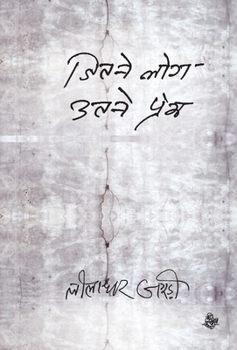 जितने लोग-
उतने प्रेम
लीलाधर जगूड़ी